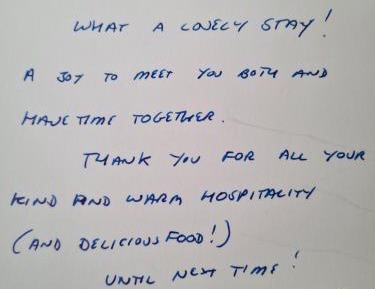 WHAT A LOVELY STAY!
A JOY TO MEET YOU BOTH AND
HAVE TIME TOGETHER.
THANK YOU FOR ALL YOUR
KIND AND WARM HOSPITALITY
(AND DELICIOUS FOOD!)
UNTIL NEXT TIME!